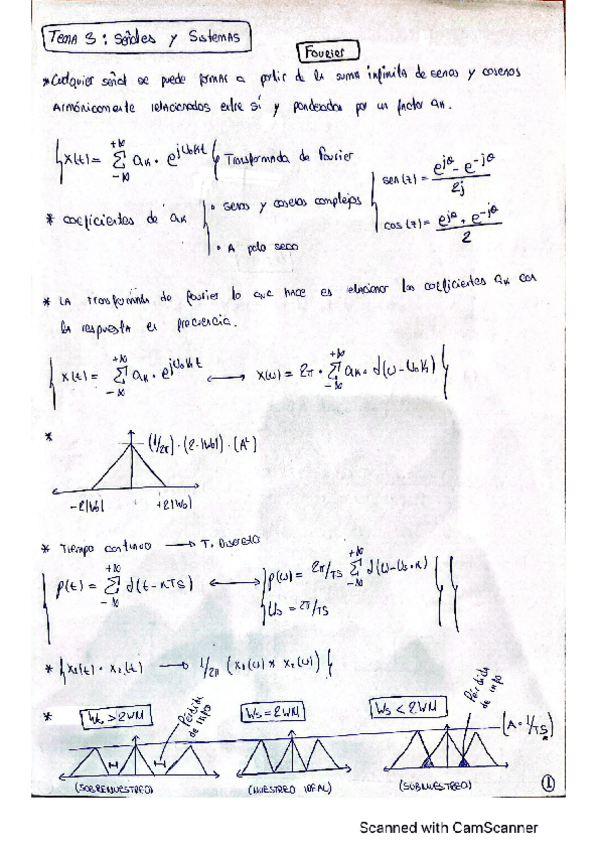 TEMA 3: Señales y Sistemas
Fourier
* Cualquier señal se puede formar a partir de la suma infinita de senos y cosenos
armónicamente relacionados entre sí y ponderados por un factor ak.
x(t) = +∞ Σ −∞ ak · e^jω0kt
Transformada de Fourier
sen(z) = e^jθ − e^−jθ / 2j
cos(z) = e^jθ + e^−jθ / 2
* coeficientes de ak
· senos y cosenos complejos
· A palo seco
* LA transformada de fourier lo que hace es relacionar los coeficientes ak con
la respuesta en frecuencia.
x(t) = +∞ Σ −∞ ak · e^jω0kt ⟷ X(ω) = 2π · +∞ Σ −∞ ak · δ(ω−ω0k)
*
(1/2π) · (2·|W0|) · (A²)
−2|W0| +2|W0|
* Tiempo continuo → T. Discreto
p(t) = +∞ Σ −∞ δ(t−nTS) ⟷ p(ω) = 2π/TS +∞ Σ −∞ δ(ω−ωs·n)
ωs = 2π/TS
* x1(t) · x2(t) → 1/2π (x1(ω) * x2(ω))
*
Ws > 2WM
Pérdida de info
Ws = 2WM
Ws < 2WM
Pérdida de info
(A · 1/TS)
(SOBREMUESTREO)
(MUESTREO IDEAL)
(SUBMUESTREO)
1
Scanned with CamScanner